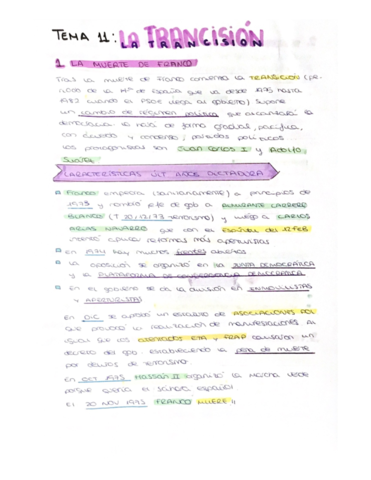 TEMA 11: LA TRANCISIÓN
1. LA MUERTE DE FRANCO
Tras la muerte de Franco comienza la TRANSICIÓN (pe-
riodo de la Hª de España que va desde 1975 hasta
1982 cuando el PSOE llega al gobierno) Supone
un cambio de régimen político que
democracia de forma gradual, pacífica,
con acuerdo y consenso, partidos políticos
los protagonistas son Juan Carlos I y Adolfo
Suárez
CARACTERÍSTICAS ÚLT AÑOS DICTADURA
Franco empeora a principios de
1973 y nombró jefe de gob a ALMIRANTE CARRERO
BLANCO († 20/12/73 terrorismo) y luego a CARLOS
ARIAS NAVARRO que con el ESPÍRITU DEL 12 FEB
intentó reformas más aperturistas
en 1974 hay muchos frentes abiertos
la oposición se organizó en la JUNTA DEMOCRÁTICA
y la PLATAFORMA DE CONVERGENCIA DEMOCRÁTICA
en el gobierno se da la división en INMOVILISTAS
y APERTURISTAS
en DIC se aprobó un estatuto de ASOCIACIONES POL
que provocó la realización de manifestaciones al
igual que los atentados ETA y FRAP causaron un
decreto del gob estableciendo la pena de muerte
por delitos de terrorismo.
en OCT 1975 Hassan II organizó la marcha verde
porque quería el Sáhara español
El 20 NOV 1975 FRANCO MUERE